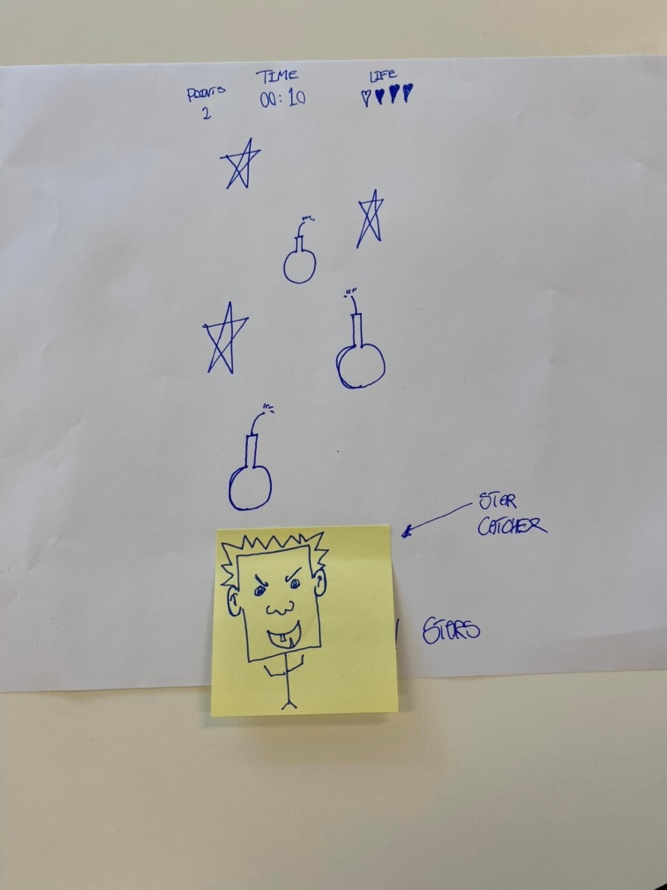 POINTS
2
TIME
00:10
LIFE
STAR
CATCHER
STARS